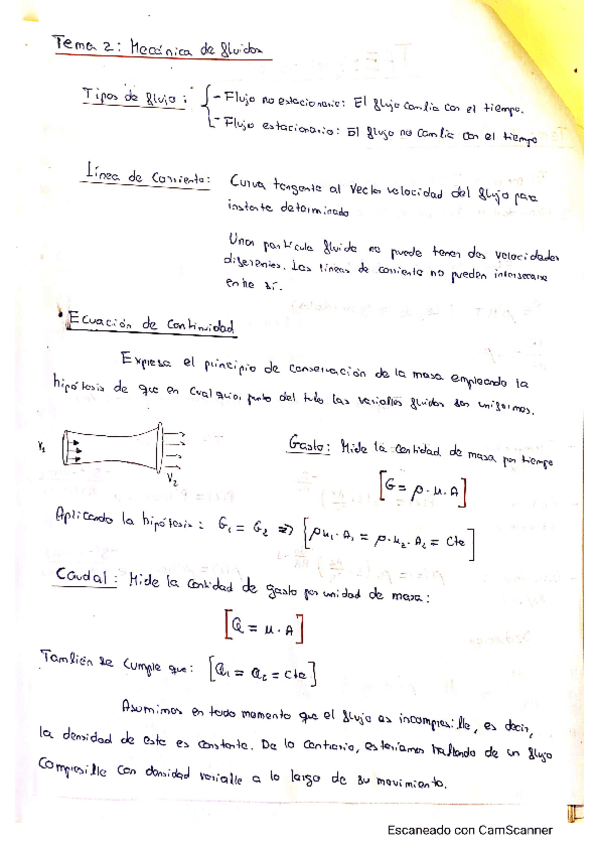 Tema 2: Mecánica de fluidos
Tipos de flujo: - Flujo no estacionario: El flujo cambia con el tiempo.
- Flujo estacionario: El flujo no cambia con el tiempo
Línea de Corriente: Curva tangente al vector velocidad del flujo para
instante determinado
Una partícula fluida no puede tener dos velocidades
diferentes. Las líneas de corriente no pueden intersecarse
entre sí.
• Ecuación de Continuidad
Expresa el principio de conservación de la masa empleando la
hipótesis de que en cualquier punto del tubo las variables fluidas son uniformes.
V₁
V₂
Gasto: Mide la cantidad de masa por tiempo
[G = ρ · u · A]
Aplicando la hipótesis: G₁ = G₂ ⇒ [ρu₁ · A₁ = ρ · u₂ · A₂ = Cte]
Caudal: Mide la cantidad de gasto por unidad de masa:
[Q = u · A]
También se cumple que: [Q₁ = Q₂ = Cte]
Asumimos en todo momento que el flujo es incompresible, es decir,
la densidad de este es constante. De lo contrario, estaríamos hablando de un flujo
compresible con densidad variable a lo largo de su movimiento.
Escaneado con CamScanner